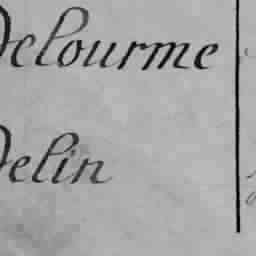 Delourme
Delin